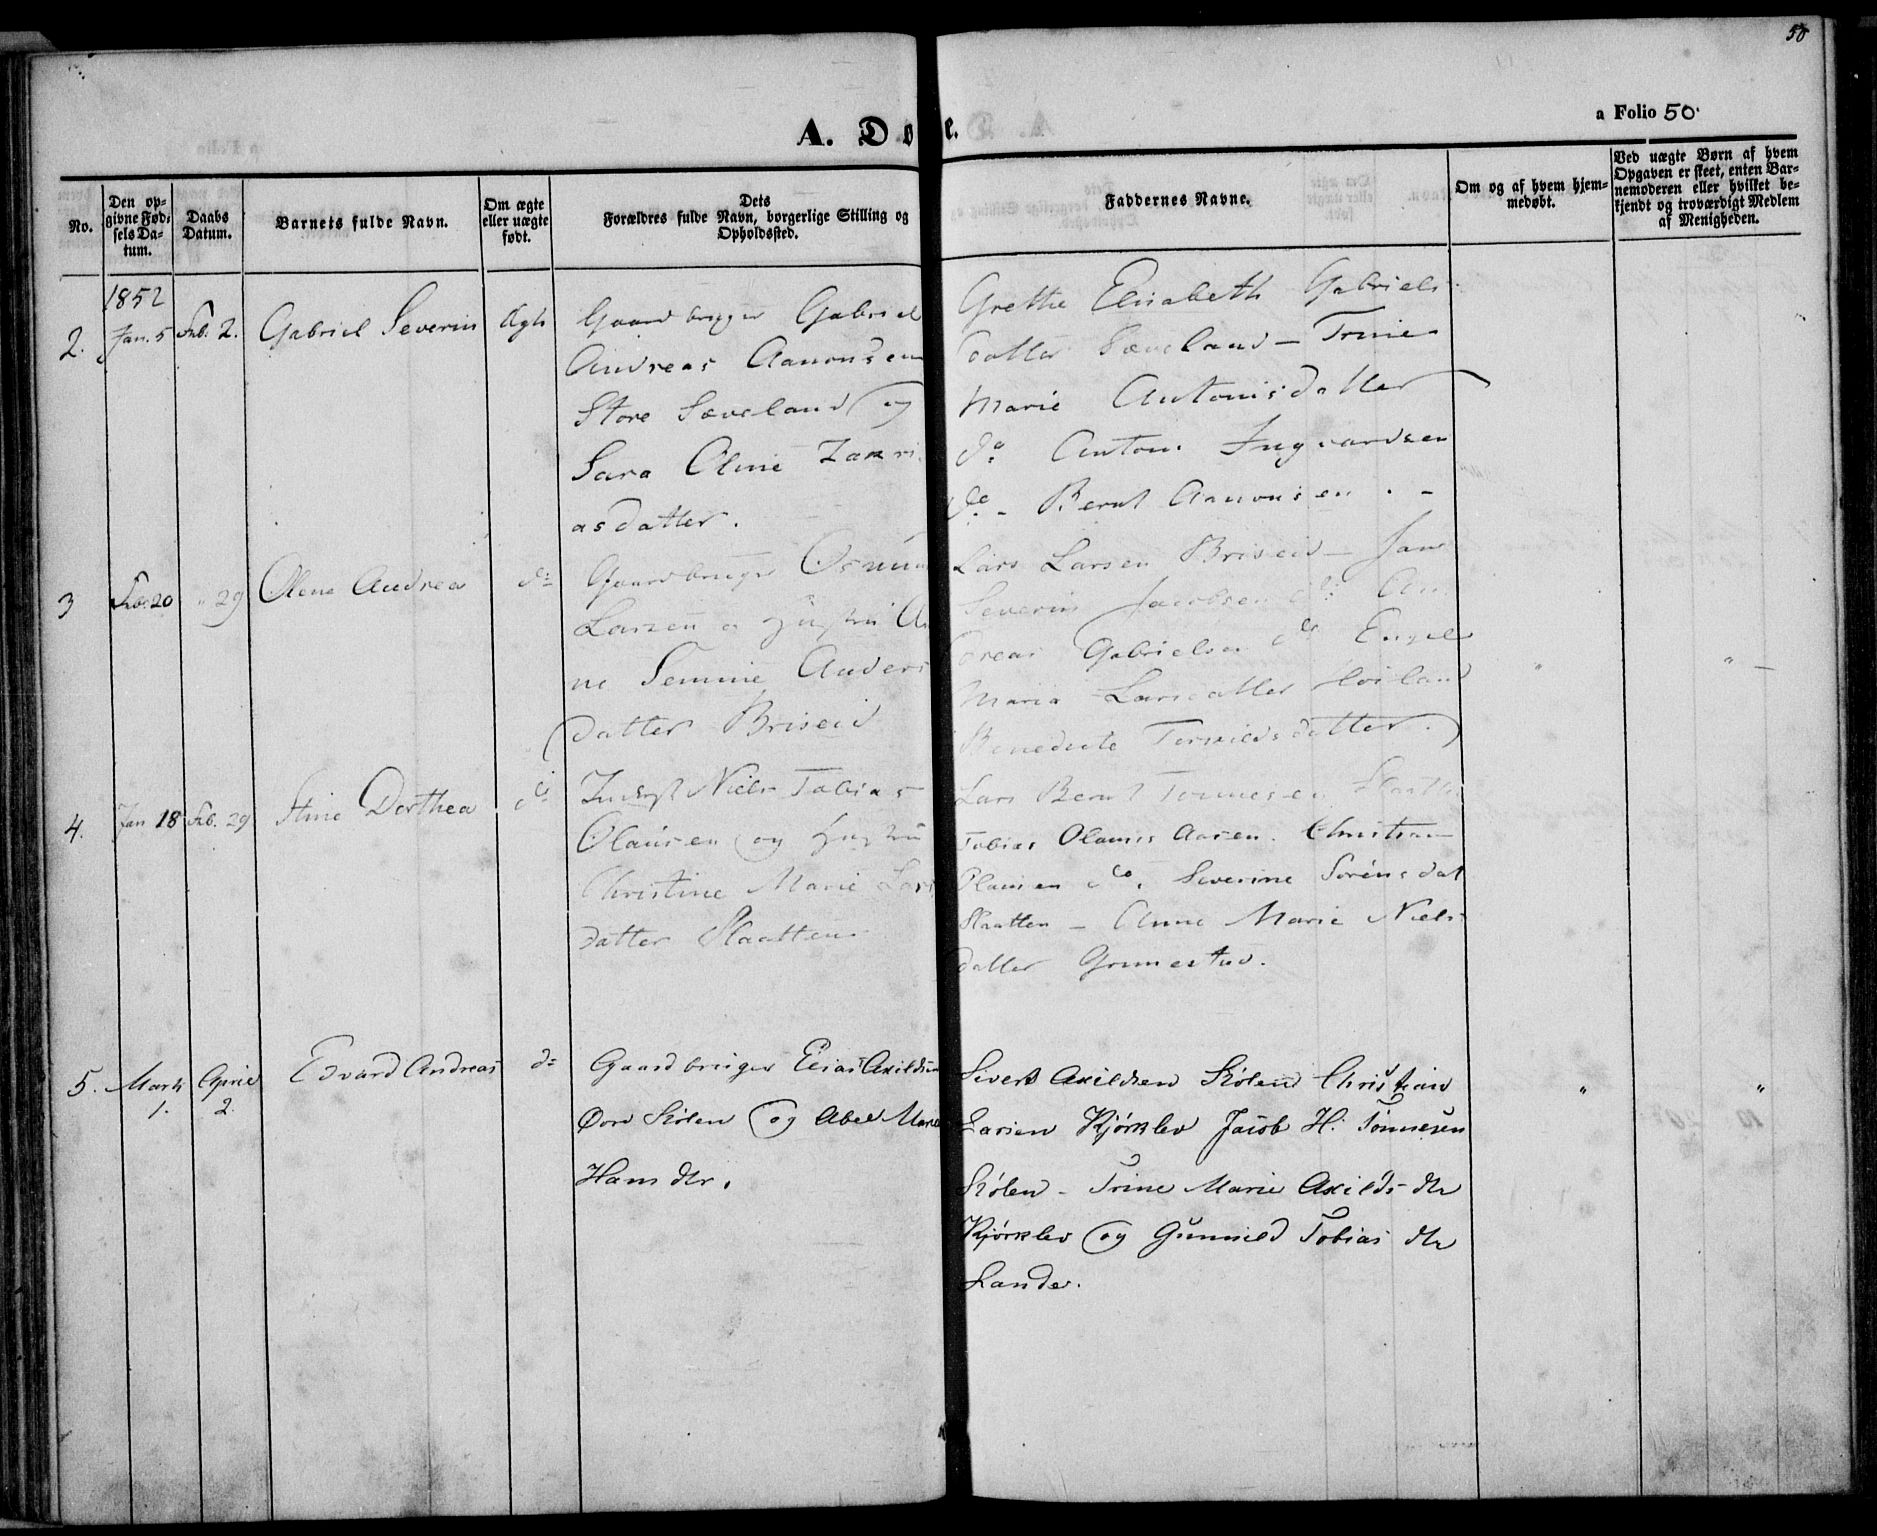 50
a Folio 50.
A. Dø e.
No.
Den op-
givne Fød-
sels Da-
tum.
Daabs
Datum.
Barnets fulde Navn.
Om ægte
eller uægte
født.
Dets
Forældres fulde Navn, borgerlige Stilling og
Opholdssted.
Faddernes Navne.
Om og af hvem hjem-
medøbt.
Ved uægte Børn af hvem
Opgaven er skeet, enten Bar-
nemoderen eller hvilket be-
kjendt og troværdigt Medlem
af Menigheden.
1852
2. Jan. 5 Feb. 2. Gabriel Severin Ægte
Gaardbruger Gabriel
Andreas Aanonsen
Store Sæveland og
Sara Oline Zakri
asdatter.
Grethe Elisabeth Gabriels
datter Sæveland – Trine
Marie Antonisdatter
do Anton Ingvardsen
do – Bernt Aanonsen
3 Feb. 20 " 29 Olene Andrea do
Gaardbruger Osmun
Larsen og Hustru A
ne Semine Anders
datter Briseid
Lars Larsen Briseid – Jan
Severin Jacobsen do An
dreas Gabrielsen do Engel
Maria Larsdatter Høiland
Benedicte Terkildsdatter.
4. Jan 18 Feb. 29 Stine Dorthea do
Inderst Niels Tobias
Olausen og Hustru
Christine Marie Lars
datter Slaatten
Lars Bernt Tønnesen Slaatten
Tobias Olausen Aasen. Christian
Olausen do. Severine Sørensdat
Slaatten – Anne Marie Niels
datter Grimestad.
5. Marts 1. April 2. Edvard Andreas do
Gaardbruger Elias Axildsen
Øvre Skolen og Abel Marie
Hans dtr.
Sivert Axildsen Skølen Christian
Larsen Kjørklev Jacob H. Tønnesen
Skølen – Trine Marie Axilds dtr
Kjørklev og Gunnild Tobias dtr
Lande.